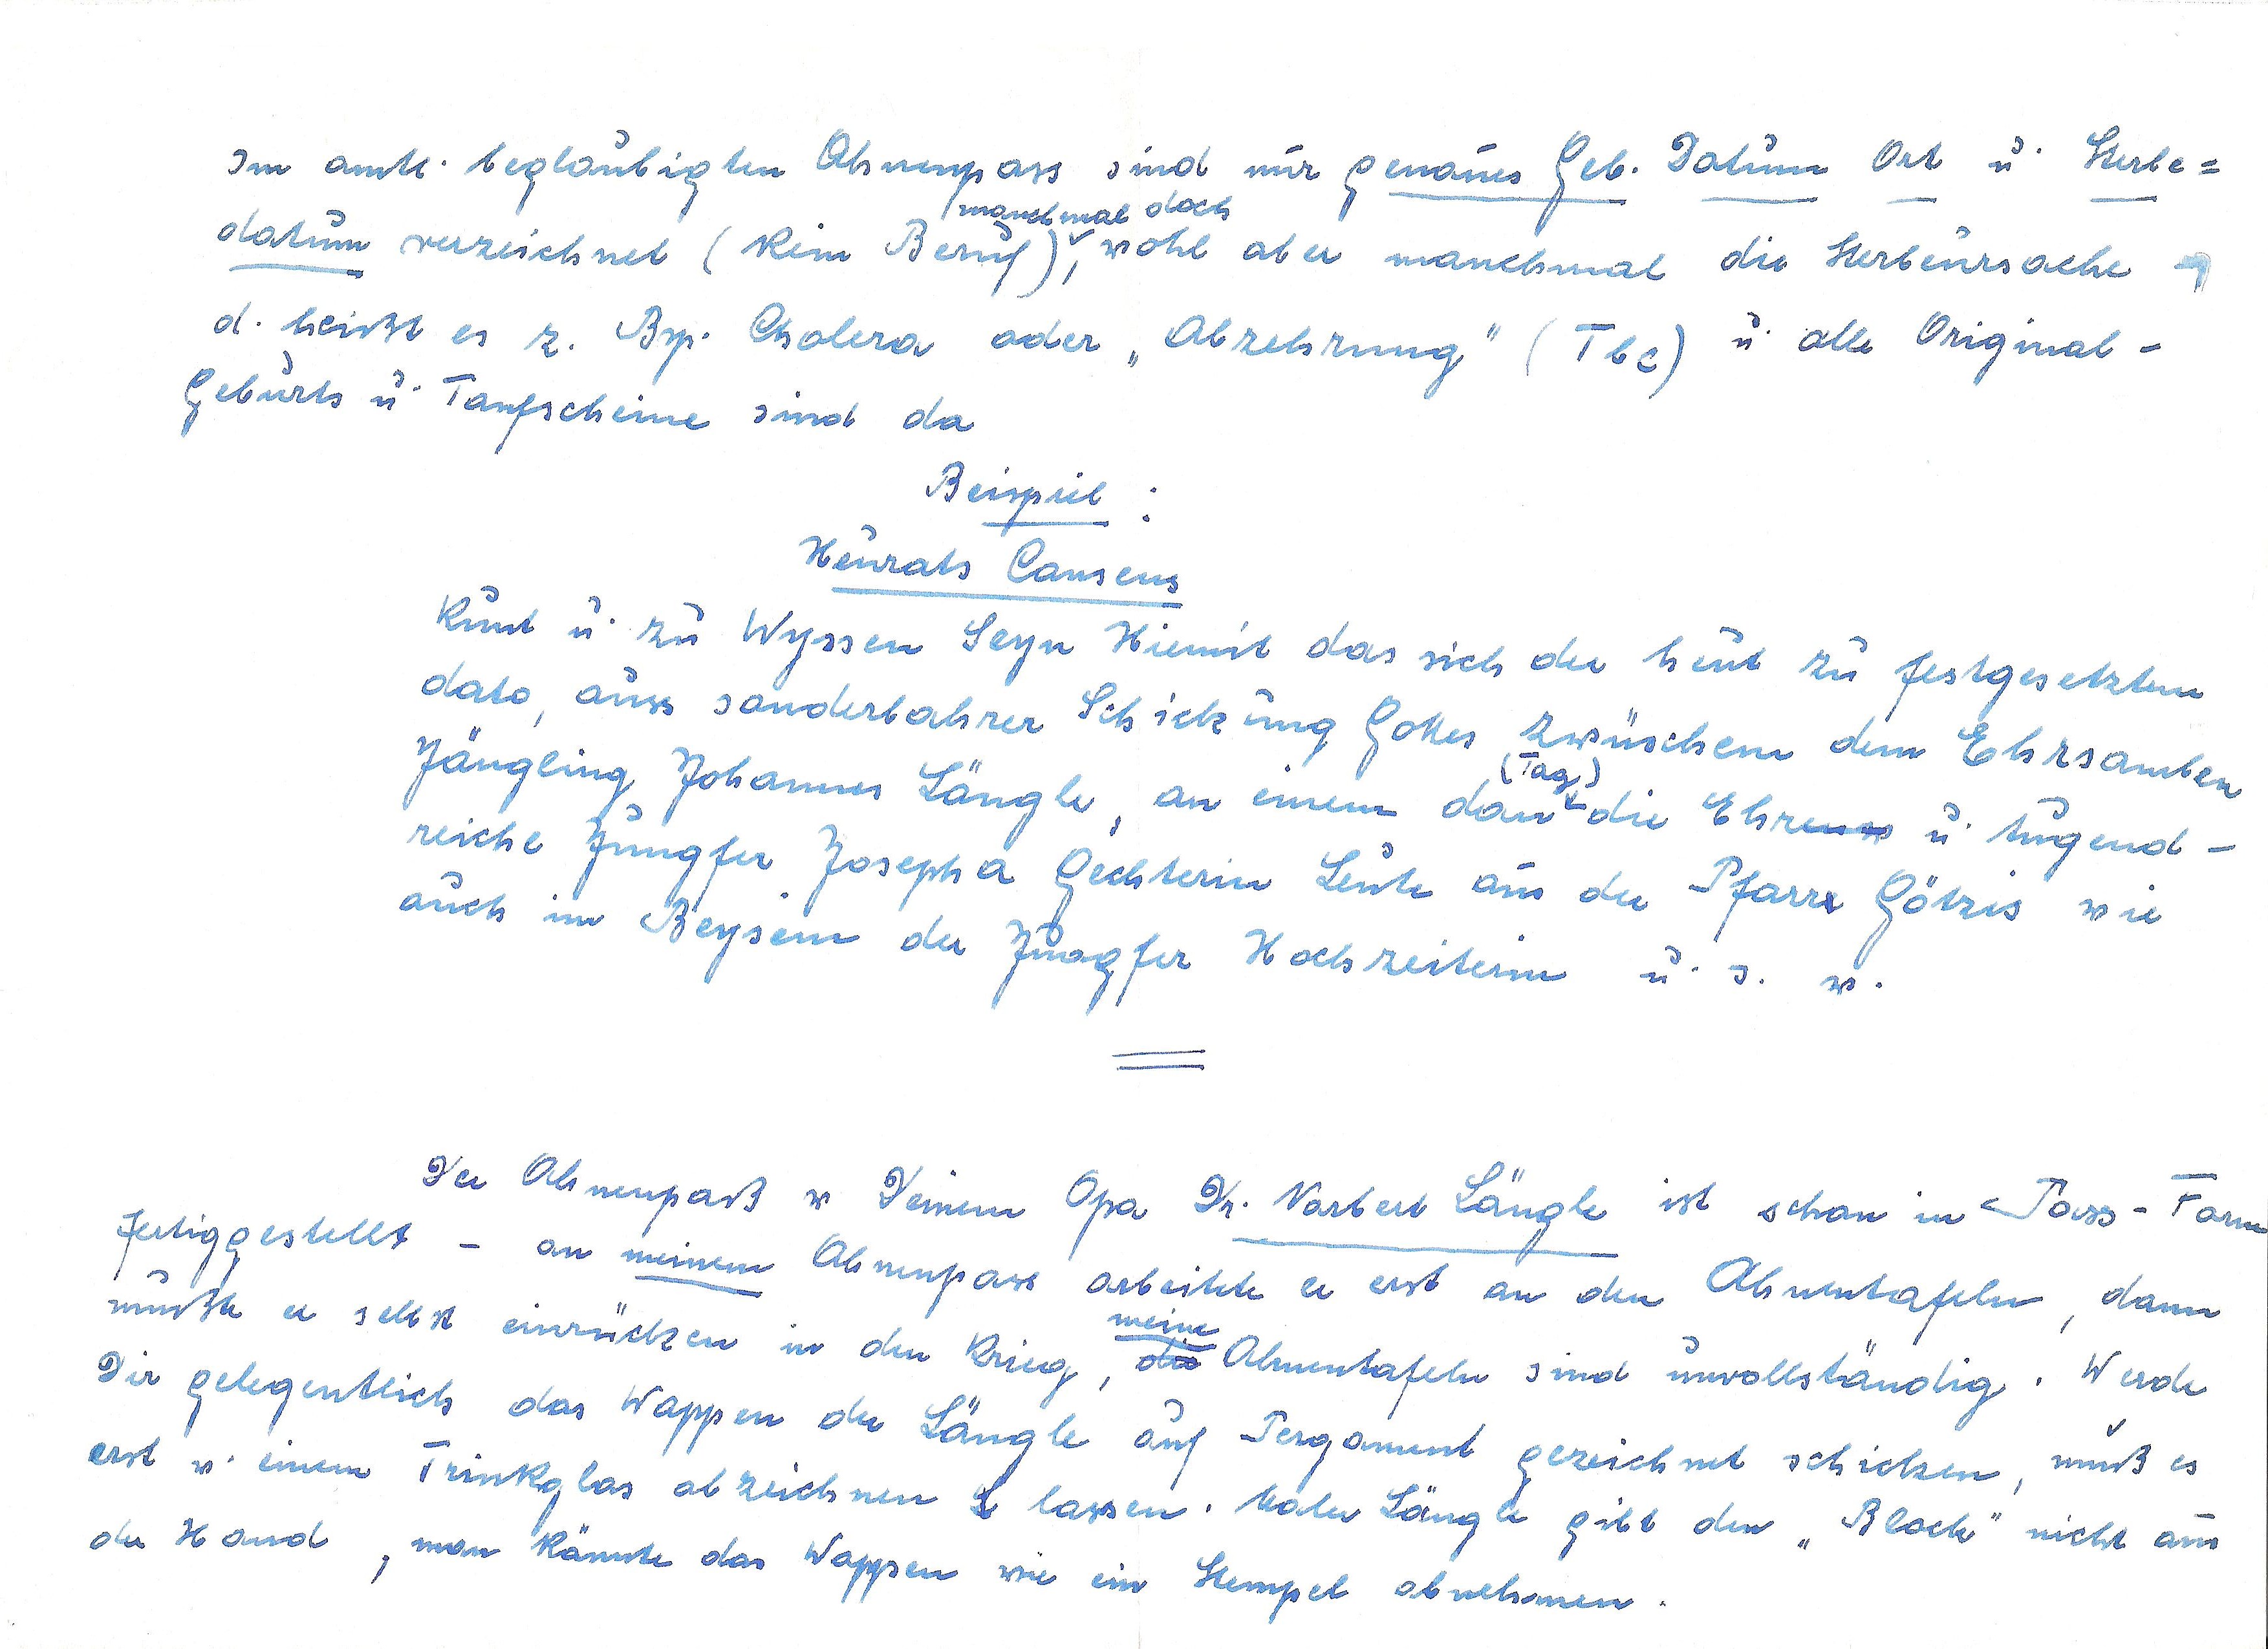 Im amtl. beglaubigten Ahnenpass sind nur genaues Geb. Datum Ort u. Sterbe=
manchmal doch
datum verzeichnet (kein Beruf), wohl aber manchmal die Sterbeursache
d. heißt es z. Bsp. Cholera oder „Abzehrung" (Tbc) u. alle Original-
Geburts u. Taufscheine sind da
Beispiel :
Heurats Consens
Kunt u. zu Wyssen Seyn Hiemit das sich der heut zu festgesetzten
dato, auss sonderbahrer Schickung Gottes zwüschen dem Ehrsamben
(Tag)
Jüngling Johannes Längle, an einem dan die Ehren u. tugend-
reiche Jungfer Josepha Gechterin Leute aus der Pfarre Götzis wie
auch im Beysein der Jungfer Hochzeiterin u. s. w.
Der Ahnenpaß v Deinem Opa Dr. Norbert Längle ist schon in Pass-Form
fertiggestellt - an meinem Ahnenpass arbeitete er erst an den Ahnentafeln, dann
meine
mußte er selbst einrücken in den Krieg, die Ahnentafeln sind unvollständig. Werde
Dir gelegentlich das Wappen der Längle auf Pergament gezeichnet schicken, muß es
erst v. einem Trinkglas abzeichnen lassen. Längle gibt den „Block" nicht aus
der Hand, man könnte das Wappen wie ein Stempel abnehmen.